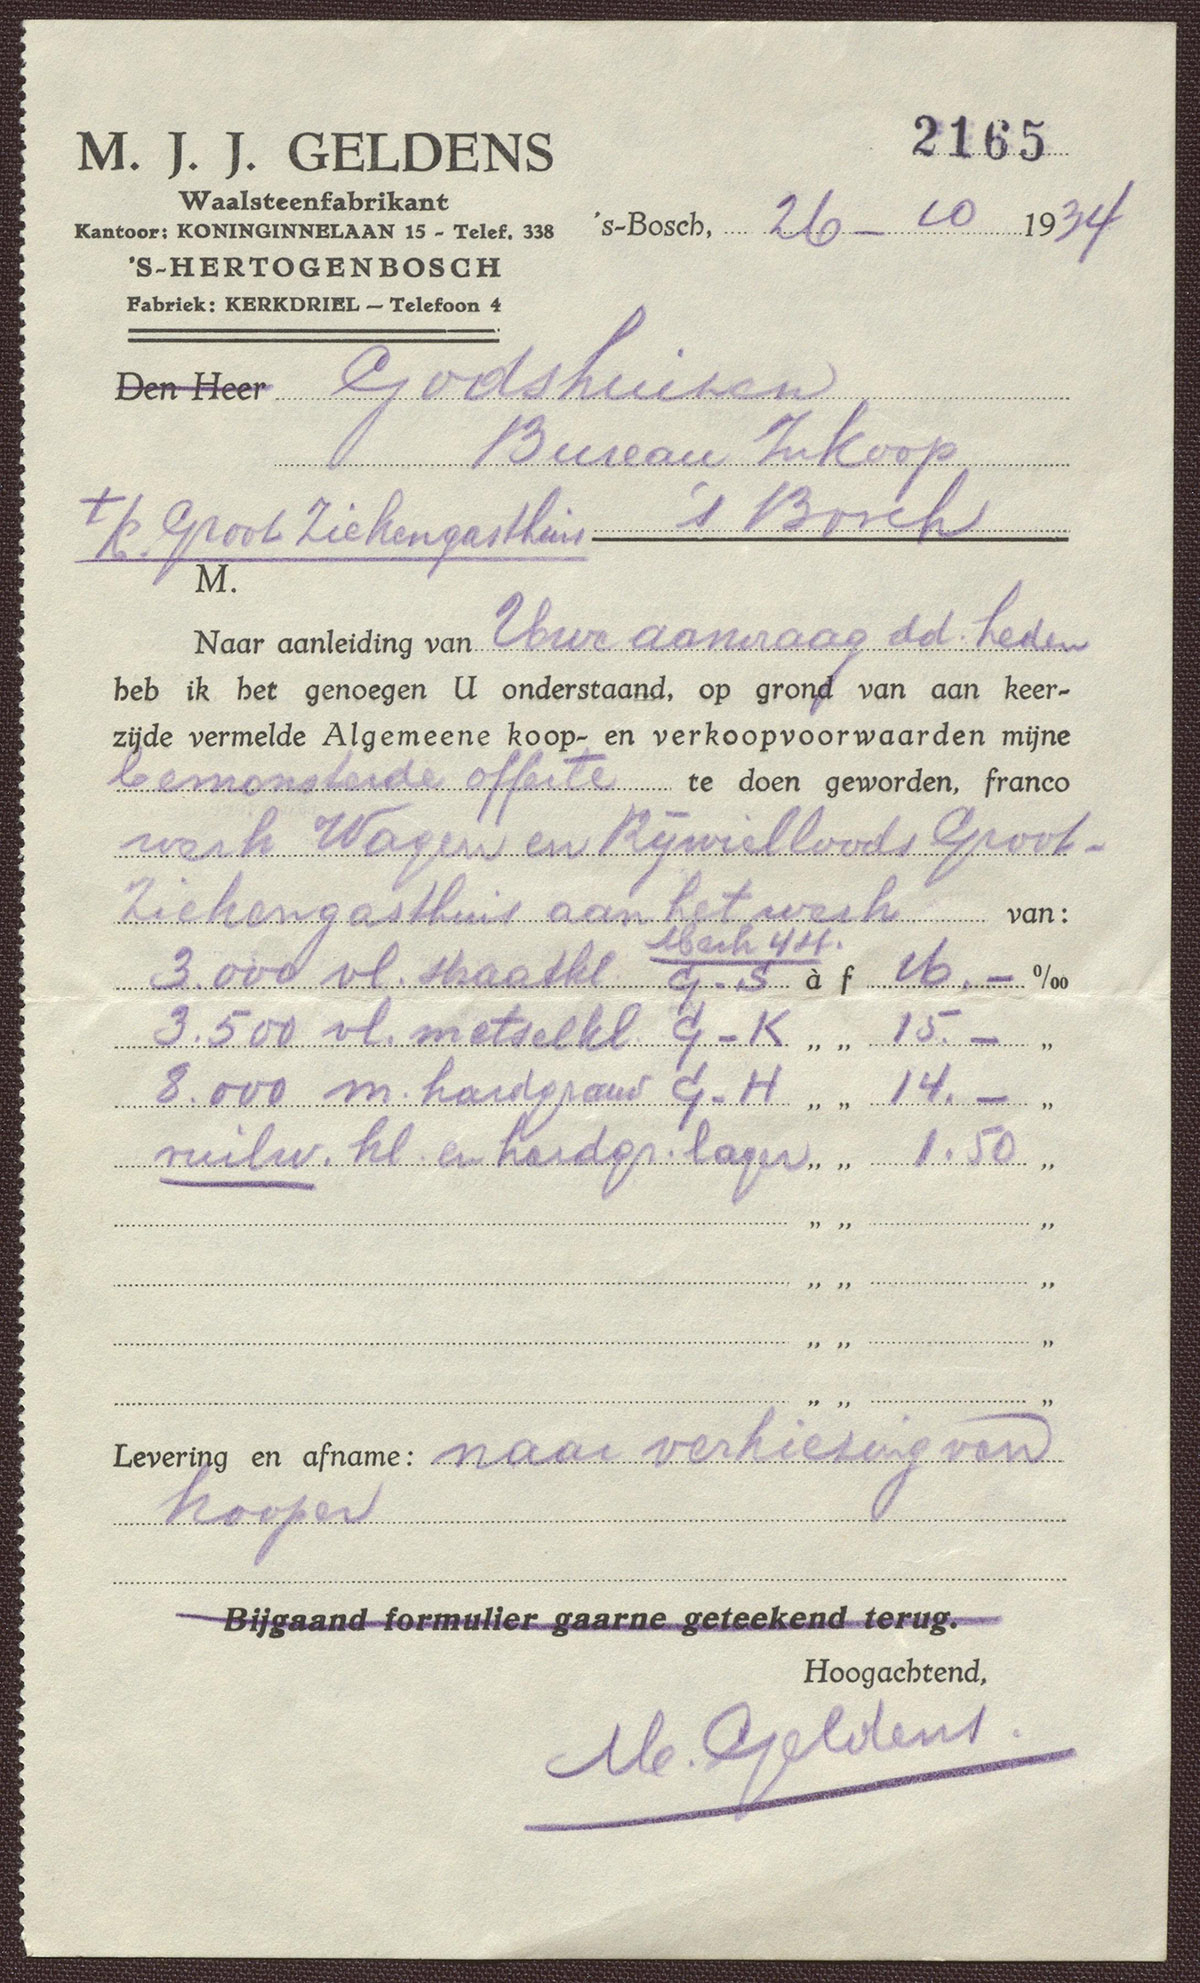 M. J. J. GELDENS
Waalsteenfabrikant
Kantoor: KONINGINNELAAN 15 - Telef. 338
'S-HERTOGENBOSCH
Fabriek: KERKDRIEL — Telefoon 4
2165
's-Bosch, 26 - 10 1934
Den Heer Godshuizen
Bureau Inkoop
's Bosch
Groot Ziekengasthuis
M.
Naar aanleiding van Uwe aanvraag dd. heden
heb ik het genoegen U onderstaand, op grond van aan keer-
zijde vermelde Algemeene koop- en verkoopvoorwaarden mijne
bemonsterde offerte te doen geworden, franco
werk Wagen en Rijwielloods Groot-
Ziekengasthuis aan het werk van:
Merk
3.000 vl. straatkl. G-S à f 16.- ⁰/₀₀
3.500 vl. metselkl. G-K „ „ 15.- „
8.000 m. hardgrauw G-H „ „ 14.- „
ruilw. kl. en hardgr. lager „ „ 1.50 „
„ „ „
„ „ „
„ „ „
„ „ „
Levering en afname: naar verkiezing van
kooper
Bijgaand formulier gaarne geteekend terug.
Hoogachtend,
M. Geldens.